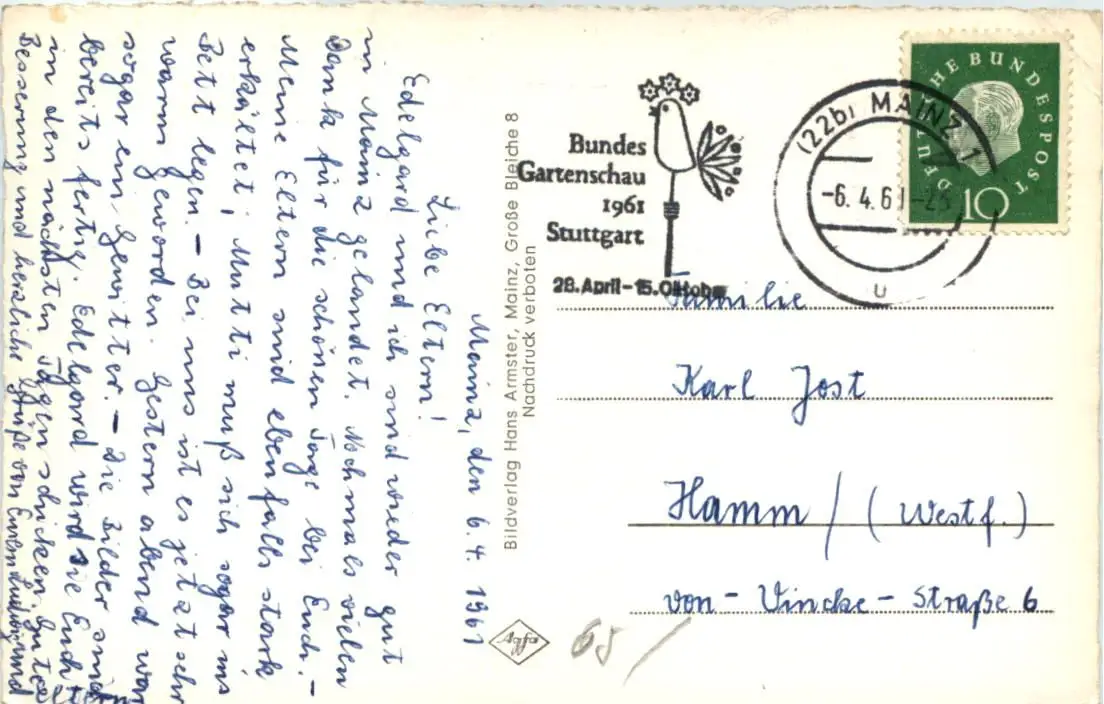 Mainz, den 6.4.1961
Liebe Eltern!
Edelgard und ich sind wieder gut
in Mainz gelandet. Nochmals vielen
Dank für die schönen Tage bei Euch. –
Meine Eltern sind ebenfalls stark
erkältet; Mutti muß sich sogar ins
Bett legen. – Bei uns ist es jetzt sehr
warm geworden. Gestern abend war
sogar ein Gewitter. – Die Bilder sind
bereits fertig. Edelgard wird sie Euch
in den nächsten Tagen schicken. Gute
Besserung und herzliche Grüße von Euren Ludwig und
Bildverlag Hans Armster, Mainz, Große Bleiche 8
Nachdruck verboten
Agfa
Bundes
Gartenschau
1961
Stuttgart
28. April-15. Oktober
(22b) MAINZ 1
-6.4.61-23
u
DEUTSCHE BUNDESPOST
10
Familie
Karl Jost
Hamm / (Westf.)
von-Vincke-Straße 6
65/